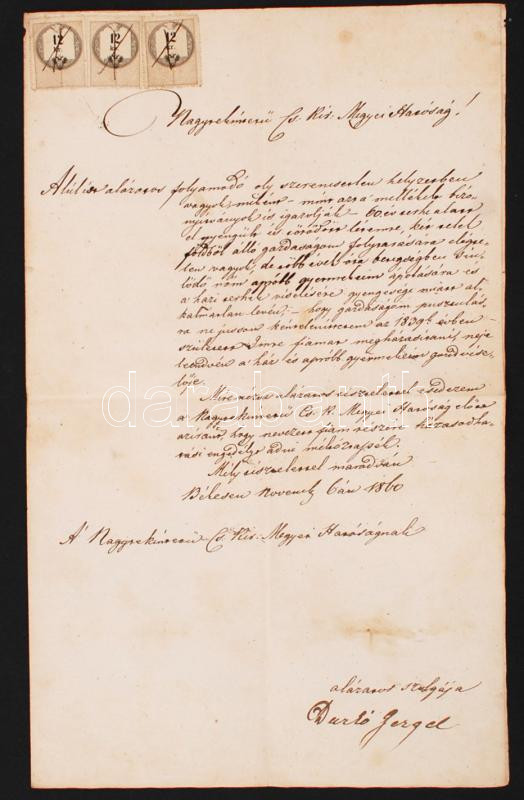 12 12 12
kr kr kr
Nagytekintetű Cs. Kir. Megyei Hatóság!
Alúlírt alázatos folyamodó oly szerencsetlen helyzetben
vagyok, miként – mint azt a mellékelt bizo-
nyítványok is igazolják – 60 év terhe alatt
el gyengült és törődött létemre, két telek
földből álló gazdaságom folytatására elég-
telen vagyok, de több évek óta betegségben sin-
lődő nőm apróbb gyermekeim ápolására és
a házi terhek viselésére gyengesége miatt al-
kalmatlan lévén, – hogy gazdaságom pusztulás-
ra ne jusson kéntelenítettem az 1839k évben
született Imre fiamat megházasítani, neje
leendvén a ház és apróbb gyermekeim gondvise-
lője.
Mire nézve alázatos tisztelettel esedezem
a Nagytekintetű Cs. K. Megyei Hatóság előtt
aziránt, hogy nevezett fiam részére házasodha-
tási engedélyt adni méltóztassék.
Mély tisztelettel maradván
Békésen Novemb 6án 1860
A' Nagytekintetű Cs. Kir. Megyei Hatóságnak
alázatos szolgája
Gergel
darabanth